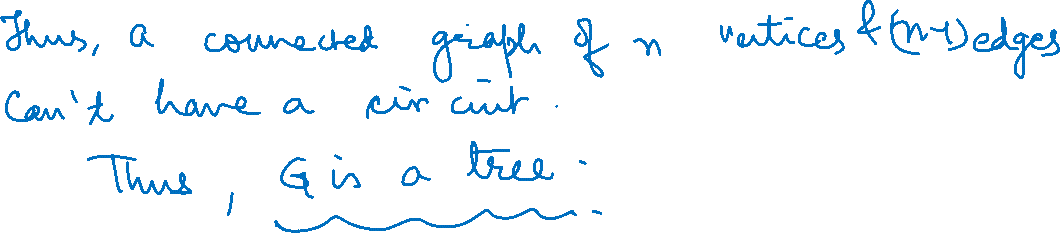 Thus, a connected graph of n vertices & (n-1) edges
Can't have a circuit.
Thus, G is a tree.